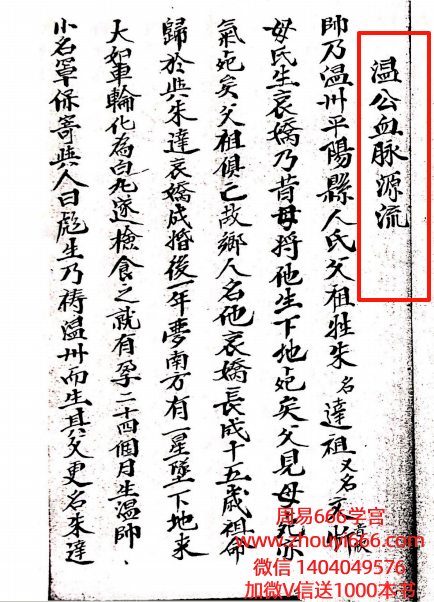 温公血脉源流
帥乃温州平陽縣人氏父祖姓朱名達祖又名
母氏生哀嬌乃昔母将他生下地死矣父見母死
氣死矣父祖俱亡故鄉人名他哀嬌長成十五歲祖命
歸於與朱達哀嬌成婚後一年夢南方有一星墜下地来
大如車輪化為白丸遂檢食之就有孕二十四個月生温帥
小名罩保寄與人曰彪生乃祷温州而生其父更名朱達
周易666学宫
www.zhouyi666.com
微信 1404049576
加微V信送1000本书